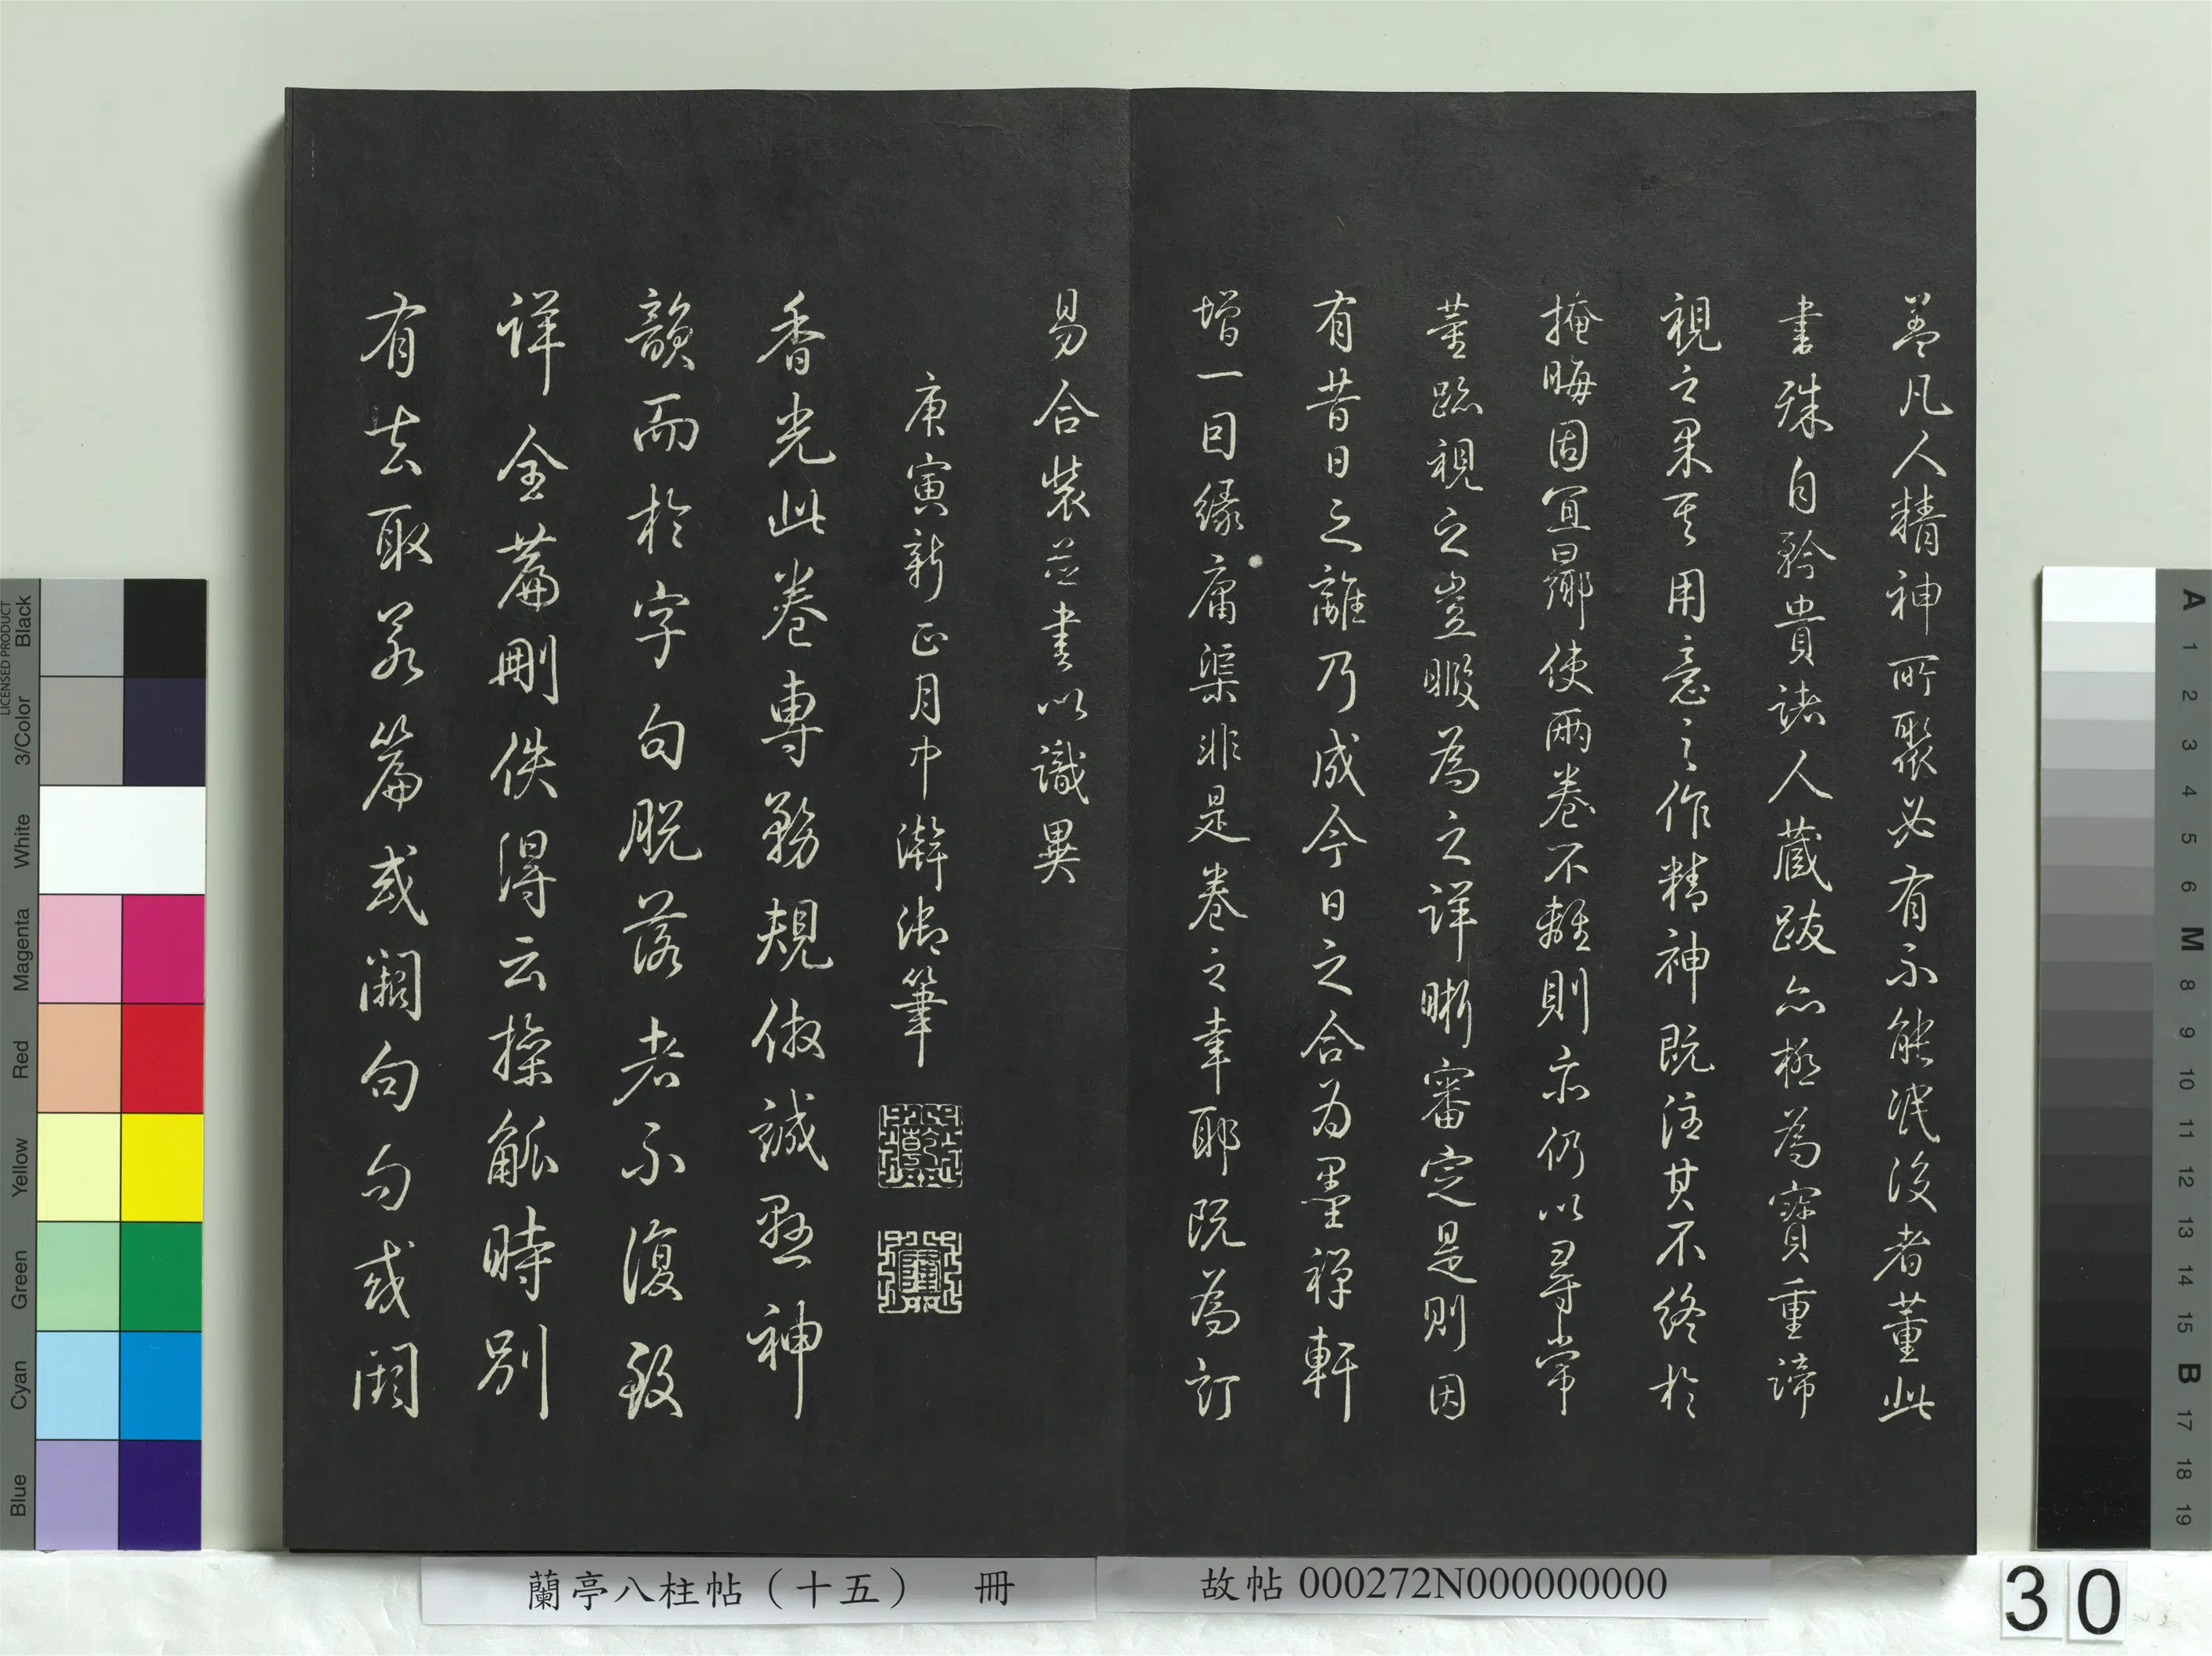 盖凡人精神所聚必有不能泯没者董此
書殊自矜貴諸人藏跋亦極為寶重諦
視之果其用意之作精神既注其不終於
掩晦固宜曏使兩卷不離則亦仍以尋常
董跡視之豈暇為之詳晰審定是則因
有昔日之離乃成今日之合為墨禪軒
增一因緣庸渠非是卷之幸耶既為訂
易合裝並書以識異
庚寅新正月中澣御筆
乾隆
香光此卷專務規倣誠懸神
韻而於字句脫落者不復致
詳全篇刪佚得云操觚時別
有去取若篇或闕句句或闕
蘭亭八柱帖（十五） 冊
故帖 000272N000000000
30
LICENSED PRODUCT
Black
3/Color
White
Magenta
Red
Yellow
Green
Cyan
Blue
A
1
2
3
4
5
6
M
8
9
10
11
12
13
14
15
B
17
18
19